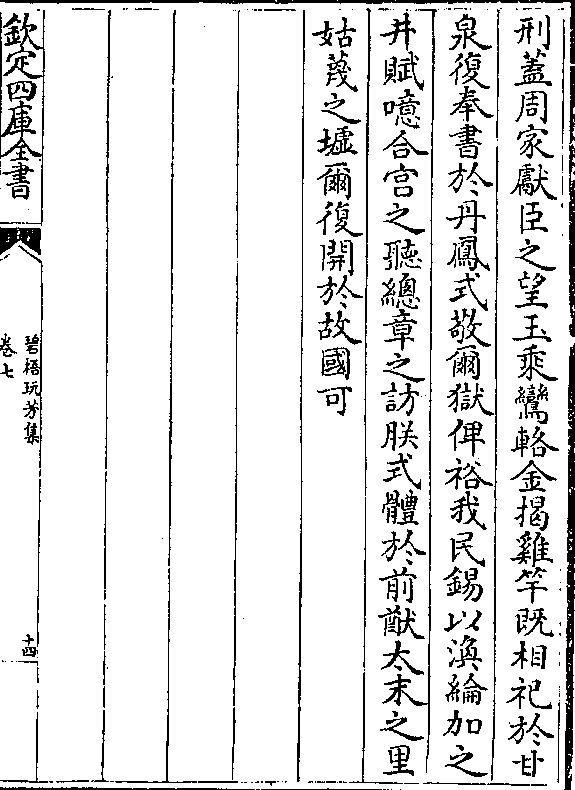 刑蓋周家獻臣之望玉乘鸞輅金揭雞竿既相祀於甘
泉復奉書於丹鳳式敬爾獄俾裕我民錫以渙綸加之
井賦噫合宫之聽總章之訪朕式體於前猷太末之里
姑蔑之墟爾復開於故國可
欽定四庫全書
碧梧玩芳集
卷七
十四